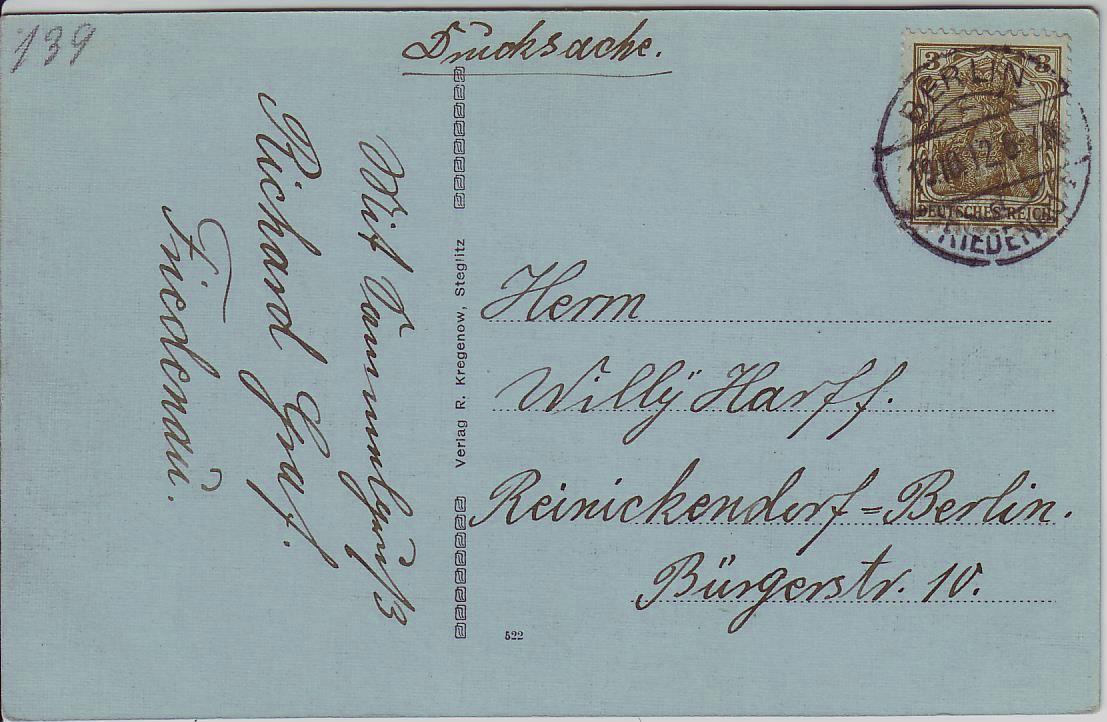 139
Drucksache.
3 3
DEUTSCHES REICH
BERLIN
19.10.12. 6-7N
FRIEDENAU
Mit Sammelgruß
Richard Graf.
Friedenau.
Verlag R. Kregenow, Steglitz
Herrn
Willÿ Harff.
Reinickendorf=Berlin.
Bürgerstr. 10.
522